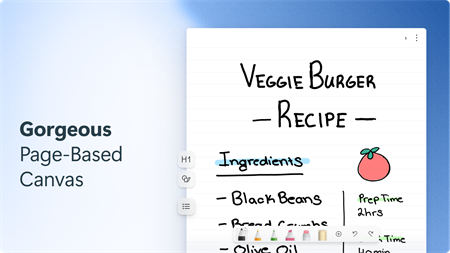 Gorgeous
Page-Based
Canvas
VEGGIE BURGER
— RECIPE —
H1
Ingredients
- Black Beans
Prep Time
2hrs
- Bread Crumbs
Time
- Olive Oil